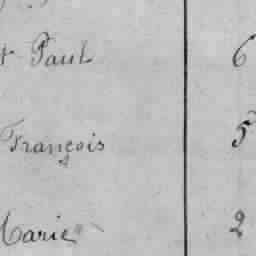 t Paul 6
François 5
Marie 2